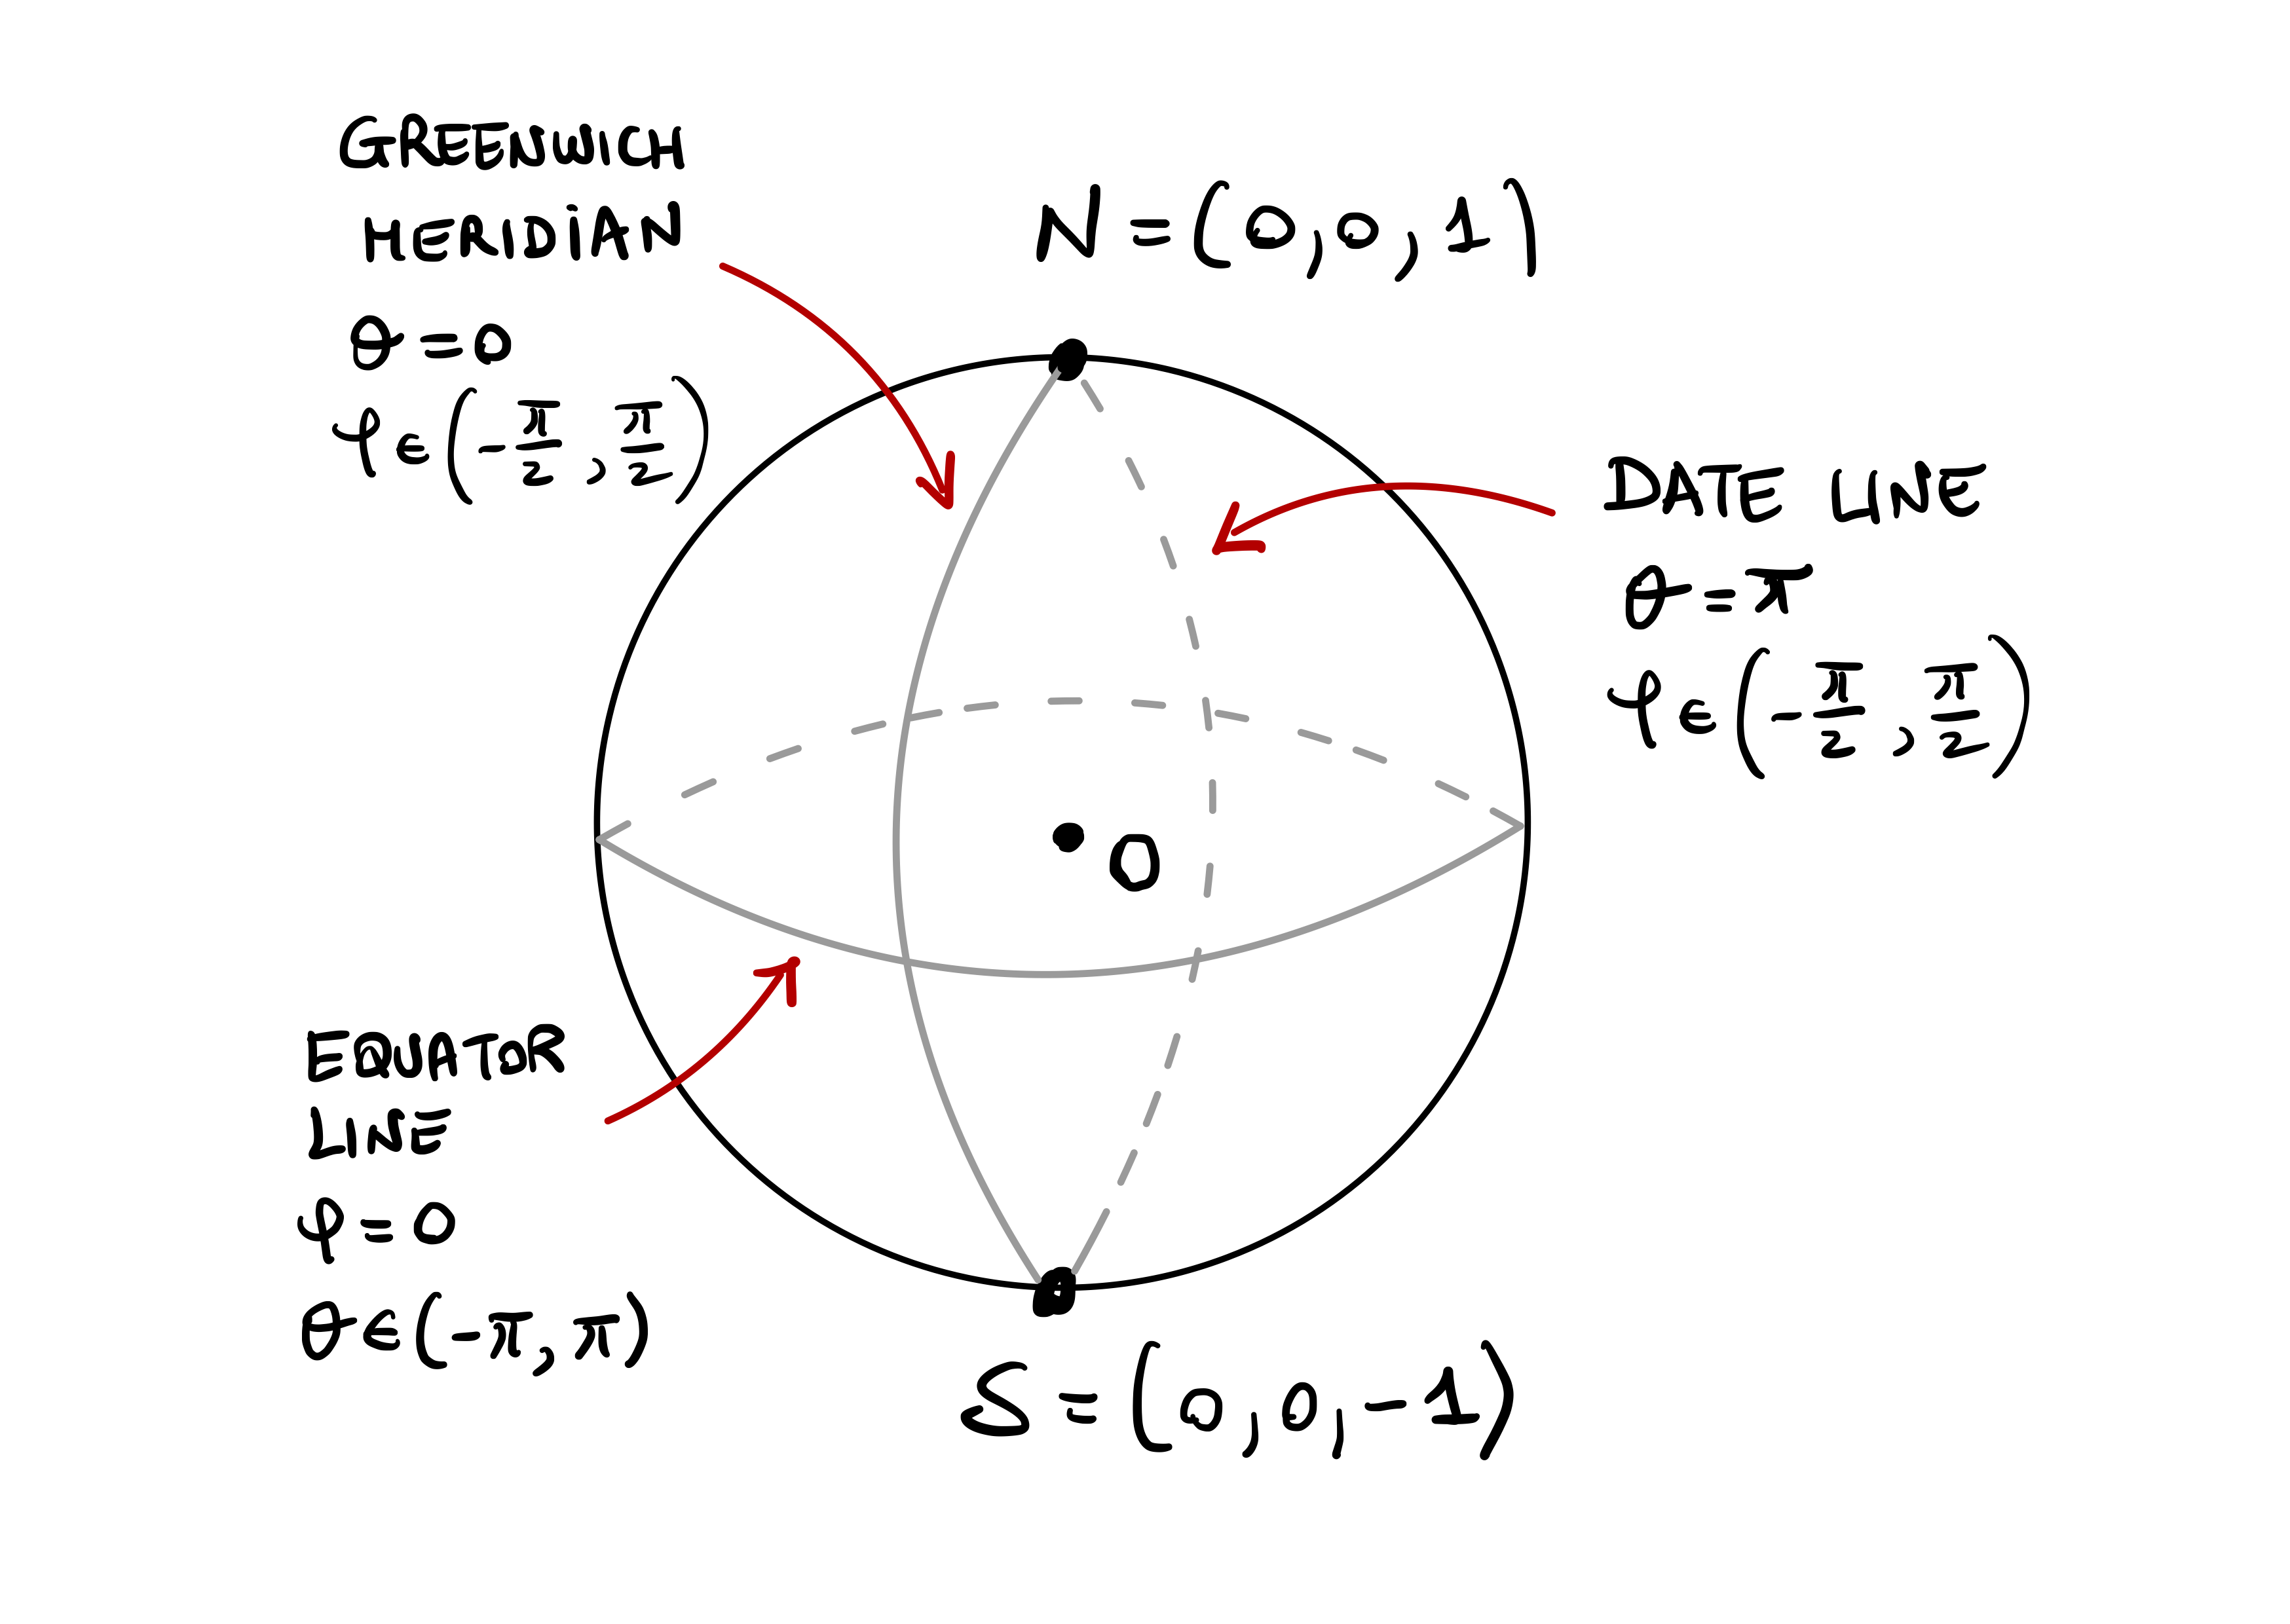 GREENWICH
MERIDIAN
θ = 0
φ ∈ (-π/2, π/2)
N = (0, 0, 1)
DATE LINE
θ = π
φ ∈ (-π/2, π/2)
O
EQUATOR
LINE
φ = 0
θ ∈ (-π, π)
S = (0, 0, -1)